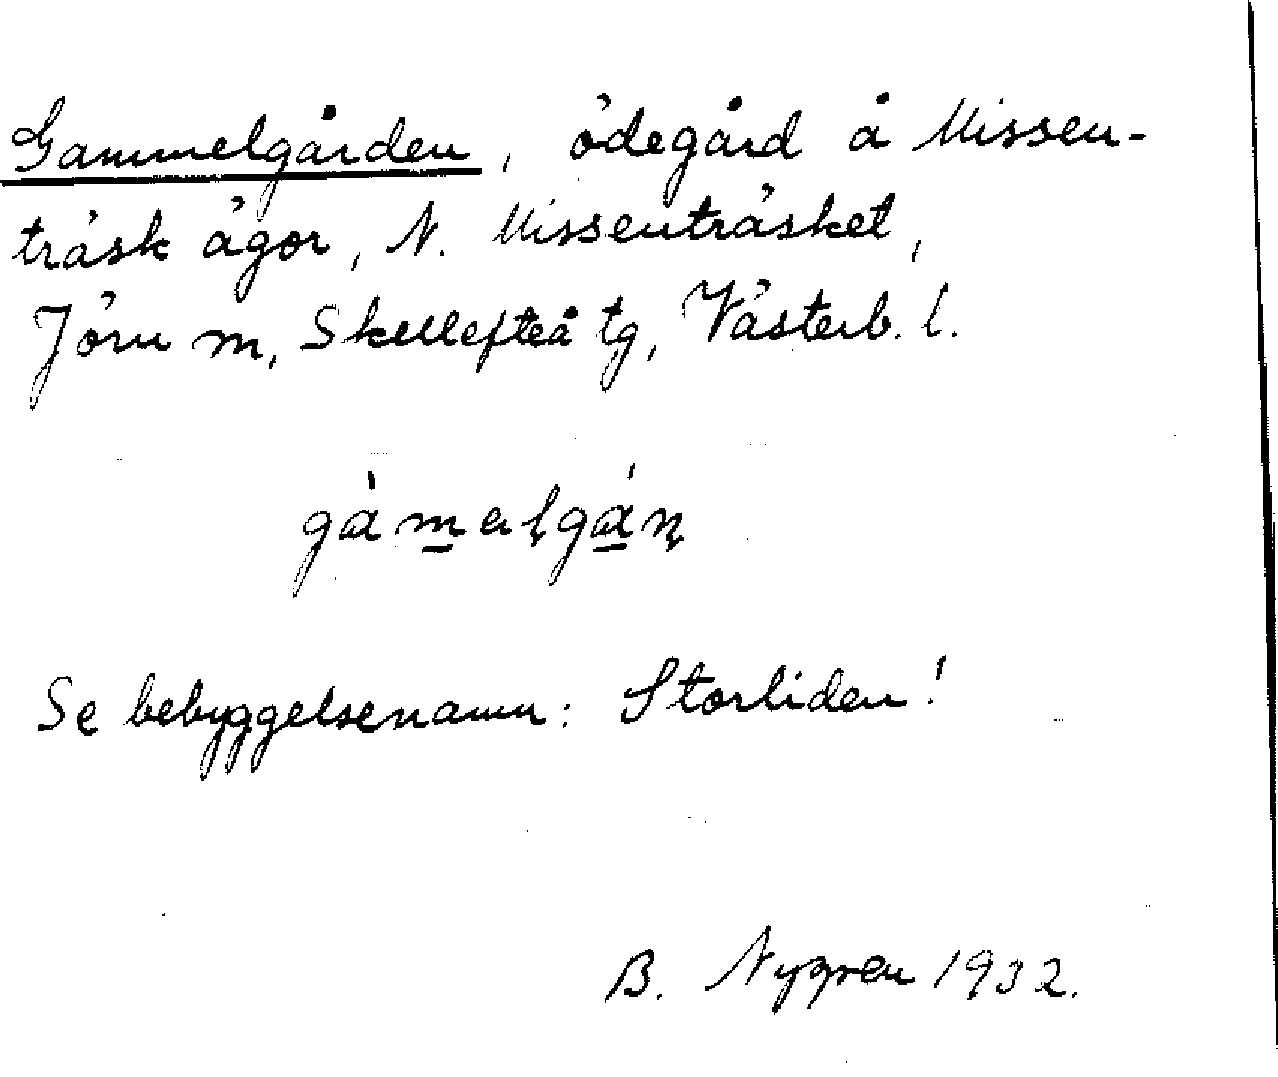 Gammelgården, ödegård å Missen-
träsk ägor, N. Missenträsket,
Jörn m, Skellefteå tg, Västerb. l.
gàmalgán
Se bebyggelsenamn: Storliden!
B. Nygren 1932.